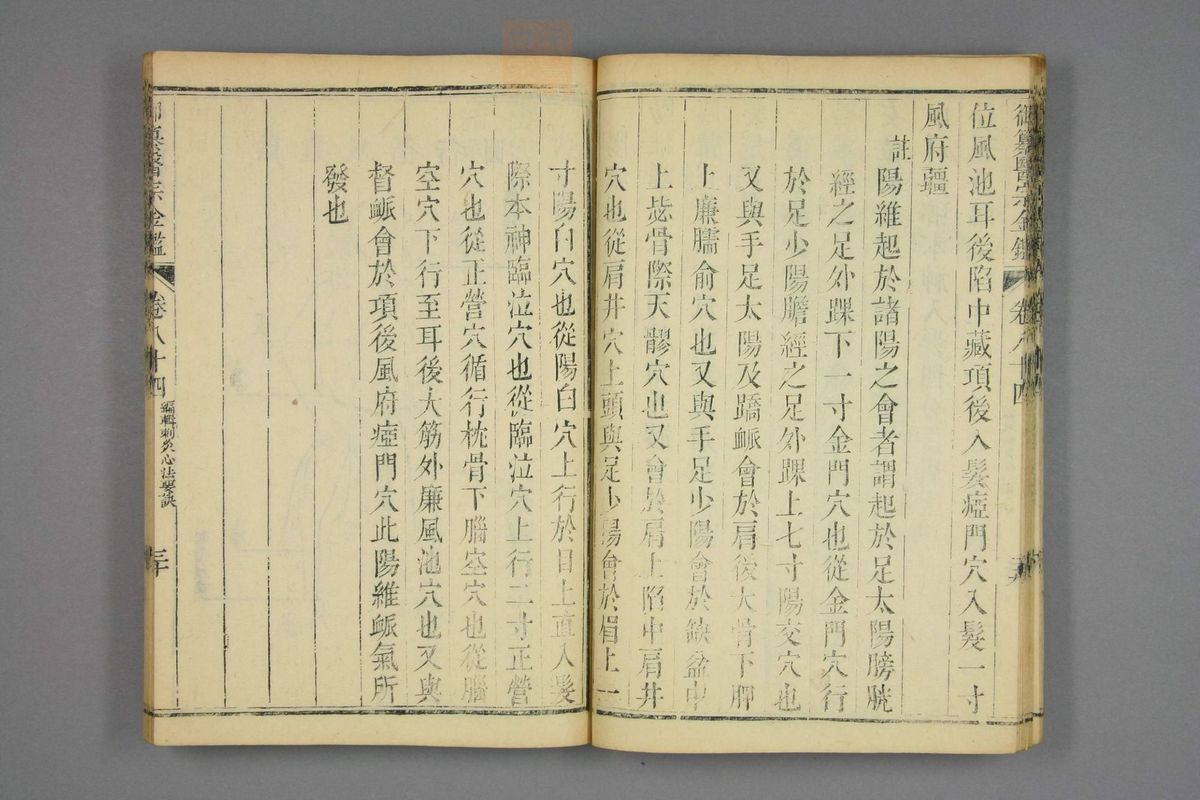 御纂醫宗金鑑 卷八十四
位風池耳後陷中藏項後入髮瘂門穴入髮一寸
風府疆
註
陽維起於諸陽之會者謂起於足太陽膀胱
經之足外踝下一寸金門穴也從金門穴行
於足少陽膽經之足外踝上七寸陽交穴也
又與手足太陽及蹻衇會於肩後大骨下胛
上廉臑俞穴也又與手足少陽會於缺盆中
上毖骨際天髎穴也又會於肩上陷中肩井
穴也從肩井穴上頭與足少陽會於眉上一
寸陽白穴也從陽白穴上行於目上直入髮
際本神臨泣穴也從臨泣穴上行二寸正營
穴也從正營穴循行枕骨下腦空穴也從腦
空穴下行至耳後大筋外廉風池穴也又與
督衇會於項後風府瘂門穴此陽維衇氣所
發也
御纂醫宗金鑑 卷八十四 編輯刺灸心法要訣 三十